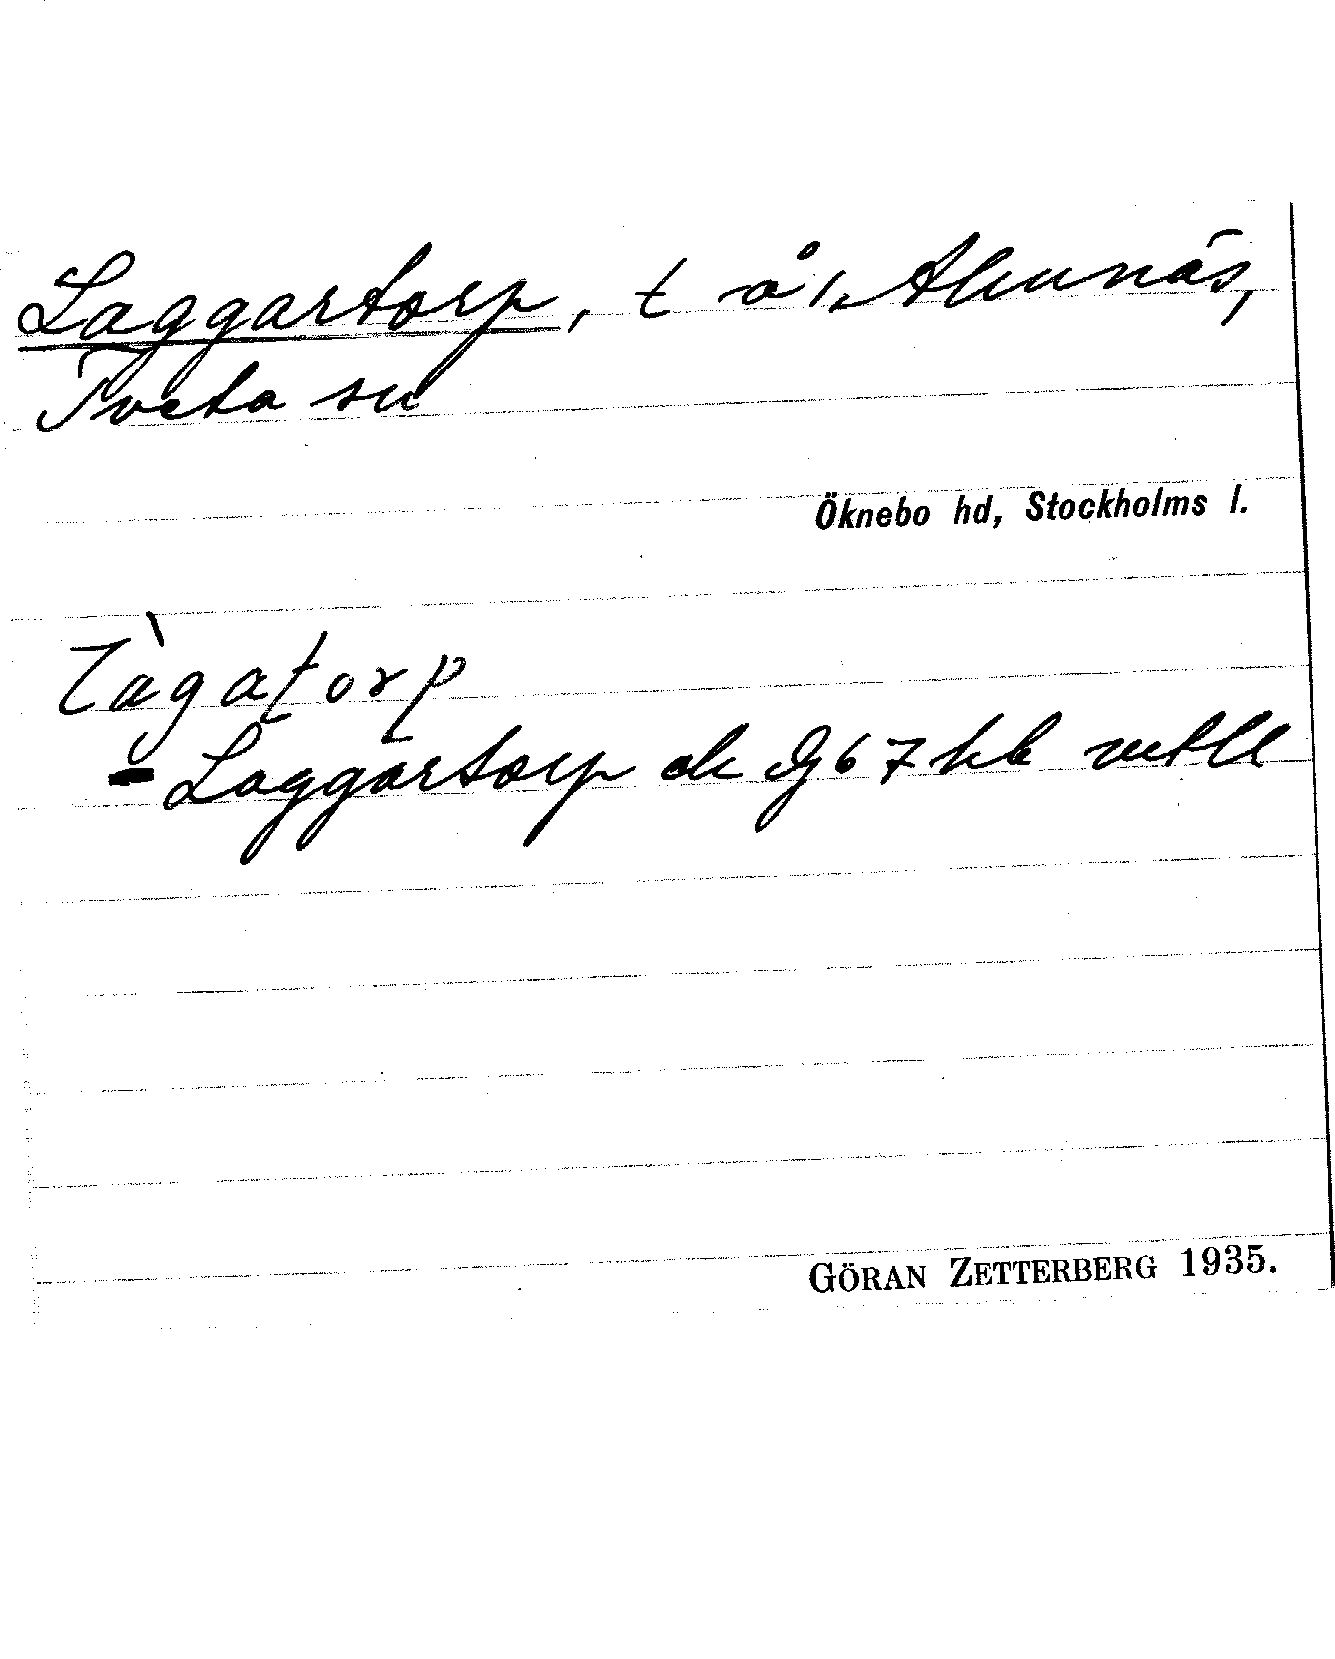 Laggartorp, t å Almnäs,
Tveta sn
Öknebo hd, Stockholms l.
làgatorp
- Laggartorp ek Gg 67 hb
GÖRAN ZETTERBERG 1935.